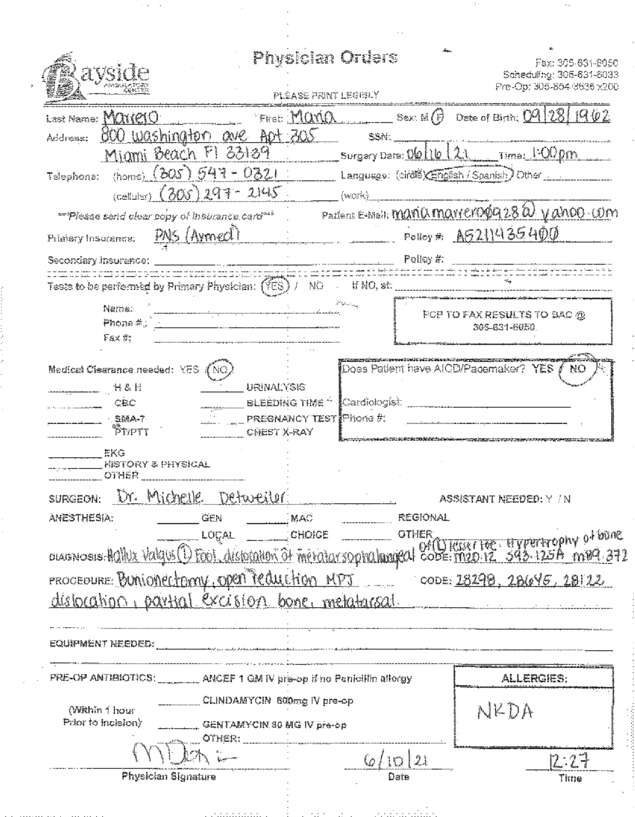 Bayside
AMBULATORY CENTER
Physician Orders
Fax: 305-631-6050
Scheduling: 305-631-6033
PLEASE PRINT LEGIBLY
Last Name: Marrero First: Maria Sex: M F Date of Birth: 09/28/1962
Address: 800 Washington ave Apt 305 SSN:
Miami Beach Fl 33139 Surgery Date: 06/16/21 Time: 1:00pm
Telephone: (home) (305) 547-0321 Language: (circle) English / Spanish Other
(cellular) (305) 297-2145 (work)
***Please send clear copy of insurance card*** Patient E-Mail: @ yahoo.com
Primary Insurance: PNS (Avmed) Policy #: A5211435400
Secondary Insurance: Policy #:
Tests to be performed by Primary Physician: YES / NO If NO, at:
Name:
Phone #:
Fax #:
PCP TO FAX RESULTS TO BAC @
305-631-6050
Medical Clearance needed: YES NO
Does Patient have AICD/Pacemaker? YES / NO
H & H URINALYSIS
CBC BLEEDING TIME Cardiologist:
SMA-7 PREGNANCY TEST Phone #:
PT/PTT CHEST X-RAY
EKG
HISTORY & PHYSICAL
OTHER
SURGEON: Dr. Michelle Detweiler ASSISTANT NEEDED: Y / N
ANESTHESIA: GEN MAC REGIONAL
LOCAL CHOICE OTHER
of (L) lesser toe. Hypertrophy of bone
DIAGNOSIS: Hallux Valgus (L) Foot, dislocation of metatarsophalangeal CODE: M20.12 S93.125A M89.372
PROCEDURE: Bunionectomy, open reduction MPJ CODE: 28298, 28645, 28122
dislocation, partial excision bone, metatarsal.
EQUIPMENT NEEDED:
PRE-OP ANTIBIOTICS: ANCEF 1 GM IV pre-op if no Penicillin allergy
CLINDAMYCIN 600mg IV pre-op
(Within 1 hour
Prior to Incision)
GENTAMYCIN 80 MG IV pre-op
OTHER:
ALLERGIES:
NKDA
6/10/21 12:27
Physician Signature Date Time